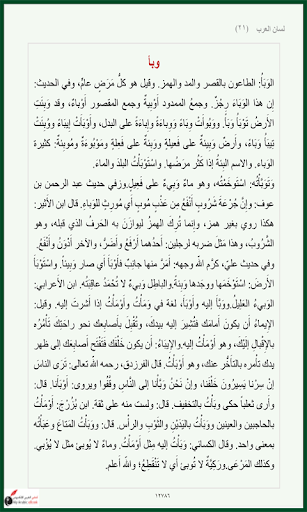 لسان العرب (٢١)
وبأ
الوَبَأُ: الطاعون بالقصر والمد والهمز. وقيل هو كلُّ مَرَضٍ عامٍّ، وفي الحديث:
إن هذا الوَبَاءَ رِجْزٌ. وجمعُ الممدود أَوْبِيةٌ وجمع المقصور أَوْباءٌ، وقد وَبِئَتِ
الأَرضُ تَوْبَأُ وَبَأً. ووَبُوأَتْ وِبَاءً ووِباءةً وإِباءةً على البدل، وأَوْبَأَتْ إِيبَاءً ووُبِئَتْ
تِيبَأُ وَبَاءً، وأَرضٌ وَبِيئةٌ على فَعيلةٍ ووَبِئةٌ على فَعِلةٍ ومَوْبُوءةٌ ومُوبِئةٌ: كثيرة
الوباء. والاسم البِئةُ إِذا كَثُر مرَضُها. واسْتَوْبَأْتُ البلدَ والماءَ.
وتَوَبَّأْتُه: اسْتَوخَمْتُه، وهو ماءٌ وَبِيءٌ على فَعِيلٍ.وفي حديث عبد الرحمن بن
عوف: وإِنَّ جُرْعَةَ شَرُوبٍ أَنْفَعُ مِن عَذْبٍ مُوبٍ أَي مُورِثٍ للوَباءِ. قال ابن الأَثير:
هكذا روي بغير همز، وإِنما تُرِكَ الهمزُ ليوازَنَ به الحَرفُ الذي قبله، وهو
الشَّرُوبُ، وهذا مَثَل ضربه لرجلين: أَحدُهما أَرْفَعُ وأَضَرُّ، والآخر أَدْوَنُ وأَنْفَعُ.
وفي حديث عليّ، كرَّم الله وجهه: أَمَرَّ منها جانِبٌ فأَوْبَأَ أَي صار وَبِيئاً. واسْتَوْبَأَ
الأَرضَ: اسْتَوْخَمَها ووجَدَها وَبِئةً.والباطِلُ وَبِيءٌ لا تُحْمَدُ عاقِبَتُه. ابن الأَعرابي:
الوَبيءُ العَلِيلُ.ووَبَّأَ إِليه وأَوْبَأَ، لغة في ومَأْتُ وأَوْمَأْتُ إِذا أَشرتَ إِليه. وقيل:
الإِيماءُ أَن يكون أَمامَك فتُشِيرَ إِليه بيدكَ، وتُقْبِلَ بأَصابعك نحو راحَتِكَ تَأْمُرُه
بالإِقْبالِ إِلَيْكَ، وهو أَوْمَأْتُ إِليه.والإِيبَاءُ: أَن يكون خَلْفَك فَتَفْتَح أَصابِعَك إِلى ظهر
يدك تأْمره بالتأَخُّر عنك، وهو أَوْبَأْتُ. قال الفرزدق، رحمه الله تعالى: تَرَى الناسَ
إِنْ سِرْنا يَسِيرُونَ خَلْفَنا، وإِنْ نَحْنُ وَبَّأْنا إِلى النَّاسِ وَقَّفُوا ويروى: أَوْبَأْنا. قال:
وأَرى ثعلباً حكى وَبَأْتُ بالتخفيف. قال: ولست منه على ثقة. ابن بُزُرْجَ: أَوْمَأْتُ
بالحاجبين والعينين ووَبَأْتُ باليَدَيْنِ والثَّوْبِ والرأْس. قال: ووَبَأْتُ المَتاعَ وعَبَأْتُه
بمعنى واحد. وقال الكسائي: وَبَأْتُ إِليه مِثل أَوْمَأْتُ. وماءٌ لا يُوبِئُ مثل لا يُؤْبي.
وكذلك المَرْعَى.ورَكِيَّةٌ لا تُوبئُ أَي لا تَنْقَطِعُ؛ واللّه أَعلم.
١٢٧٨٦